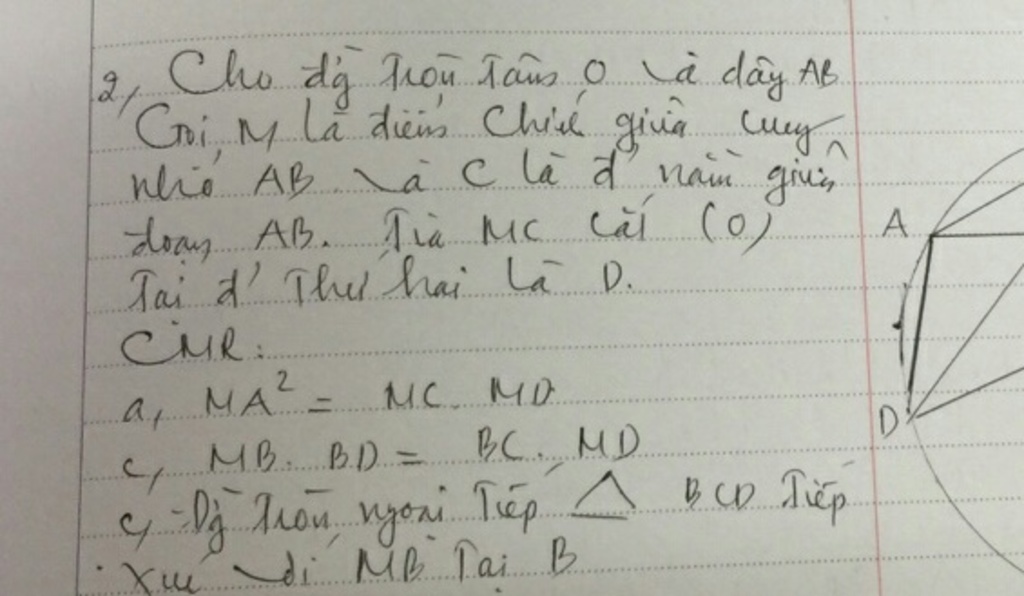 2, Cho đg tròn tâm O và dây AB
Gọi M là điểm chính giữa cung
nhỏ AB và C là đ' nằm giữa
đoạn AB. Tia MC cắt (O)
Tại đ' thứ hai là D.
CMR:
a, MA² = MC. MD
c, MB. BD = BC. MD
c, Đg tròn ngoại tiếp △ BCD Tiếp
xúc với MB Tại B
A
D